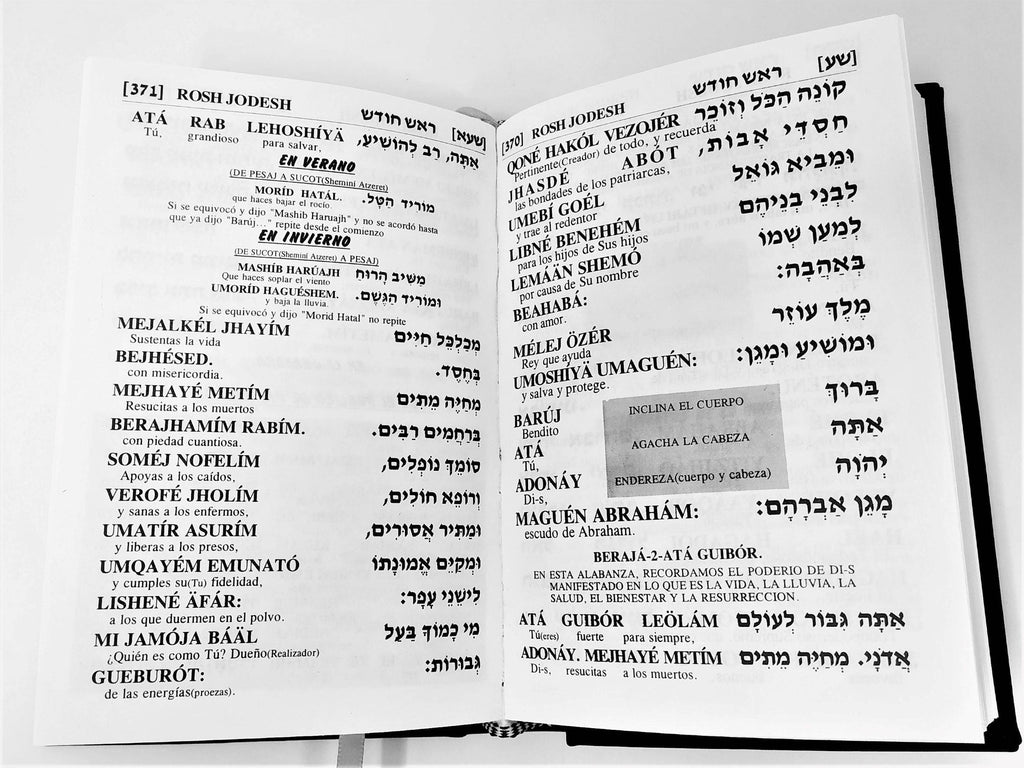 [370] ROSH JODESH ראש חודש [שע]
QONÉ HAKÓL VEZOJÉR קוֹנֵה הַכֹּל וְזוֹכֵר
Pertinente(Creador) de todo, y recuerda
JHASDÉ ABÓT, חַסְדֵי אָבוֹת,
las bondades de los patriarcas,
UMEBÍ GOÉL וּמֵבִיא גוֹאֵל
y trae al redentor
LIBNÉ BENEHÉM לִבְנֵי בְנֵיהֶם
para los hijos de Sus hijos
LEMÁÄN SHEMÓ לְמַעַן שְׁמוֹ
por causa de Su nombre
BEAHABÁ: בְּאַהֲבָה:
con amor.
MÉLEJ ÖZÉR מֶלֶךְ עוֹזֵר
Rey que ayuda
UMOSHIYÄ UMAGUÉN: וּמוֹשִׁיעַ וּמָגֵן:
y salva y protege.
BARÚJ INCLINA EL CUERPO בָּרוּךְ
Bendito
ATÁ AGACHA LA CABEZA אַתָּה
Tú,
ADONÁY ENDEREZA(cuerpo y cabeza) יְהֹוָה
Di-s,
MAGUÉN ABRAHÁM: מָגֵן אַבְרָהָם:
escudo de Abraham.
BERAJÁ-2-ATÁ GUIBÓR.
EN ESTA ALABANZA, RECORDAMOS EL PODERIO DE DI-S
MANIFESTADO EN LO QUE ES LA VIDA, LA LLUVIA, LA
SALUD, EL BIENESTAR Y LA RESURRECCION.
ATÁ GUIBÓR LEÖLÁM אַתָּה גִּבּוֹר לְעוֹלָם
Tú(eres) fuerte para siempre,
ADONÁY. MEJHAYÉ METÍM אֲדֹנָי. מְחַיֵּה מֵתִים
Di-s, resucitas a los muertos.
[371] ROSH JODESH ראש חודש [שעא]
ATÁ RAB LEHOSHÍYÄ אַתָּה, רַב לְהוֹשִׁיעַ,
Tú, grandioso para salvar,
EN VERANO
(DE PESAJ A SUCOT(Sheminí Atzeret)
MORÍD HATÁL. מוֹרִיד הַטַּל.
que haces bajar el rocío.
Si se equivocó y dijo "Mashib Haruajh" y no se acordó hasta
que ya dijo "Barúj..." repite desde el comienzo
EN INVIERNO
(DE SUCOT(Sheminí Atzeret) A PESAJ)
MASHÍB HARÚAJH מַשִּׁיב הָרוּחַ
Que haces soplar el viento
UMORÍD HAGUÉSHEM. וּמוֹרִיד הַגֶּשֶׁם.
y baja la lluvia.
Si se equivocó y dijo "Morid Hatal" no repite
MEJALKÉL JHAYÍM מְכַלְכֵּל חַיִּים
Sustentas la vida
BEJHÉSED. בְּחֶסֶד.
con misericordia.
MEJHAYÉ METÍM מְחַיֵּה מֵתִים
Resucitas a los muertos
BERAJHAMÍM RABÍM. בְּרַחֲמִים רַבִּים.
con piedad cuantiosa.
SOMÉJ NOFELÍM סוֹמֵךְ נוֹפְלִים,
Apoyas a los caídos,
VEROFÉ JHOLÍM וְרוֹפֵא חוֹלִים,
y sanas a los enfermos,
UMATÍR ASURÍM וּמַתִּיר אֲסוּרִים,
y liberas a los presos,
UMQAYÉM EMUNATÓ וּמְקַיֵּם אֱמוּנָתוֹ
y cumples su(Tu) fidelidad,
LISHENÉ ÄFÁR: לִישֵׁנֵי עָפָר:
a los que duermen en el polvo.
MI JAMÓJA BÁÄL מִי כָמוֹךָ בַּעַל
¿Quién es como Tú? Dueño(Realizador)
GUEBURÓT: גְּבוּרוֹת:
de las energías(proezas).